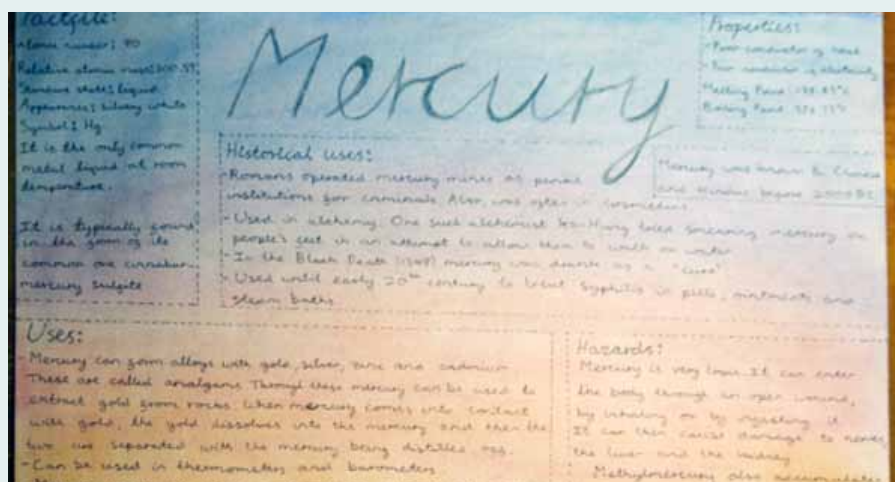 Factfile:
Atomic number: 80
Relative atomic mass: 200.59
Standard state: liquid
Appearance: silvery white
Symbol: Hg
It is the only common
metal liquid at room
temperature.
It is typically found
in the form of its
common ore cinnabar-
mercury sulfite
Mercury
Properties:
- Poor conductor of heat
- Poor conductor of electricity
Melting Point
Boiling Point
Historical uses:
- Romans operated mercury mines as penal
institutions for criminals. Also, was often in cosmetics
- Used in alchemy. One such alchemist tried smearing mercury on
people's feet in an attempt to allow them to walk on water
- In the Black Death mercury was drank as a "cure"
- Used until early 20th century to treat syphilis in pills, ointments and
steam baths
Mercury was known to Chinese
and Hindus before 2000 BC
Uses:
- Mercury can form alloys with gold, silver, zinc and cadmium.
These are called amalgams. Through these mercury can be used to
extract gold from rocks. When mercury comes into contact
with gold, the gold dissolves into the mercury and then the
two are separated with the mercury being distilled off.
- Can be used in thermometers and barometers
Hazards:
Mercury is very toxic. It can enter
the body through an open wound,
by inhaling or by ingesting it.
It can then cause damage to nerves
the liver and the kidney
Methylmercury also accumulates